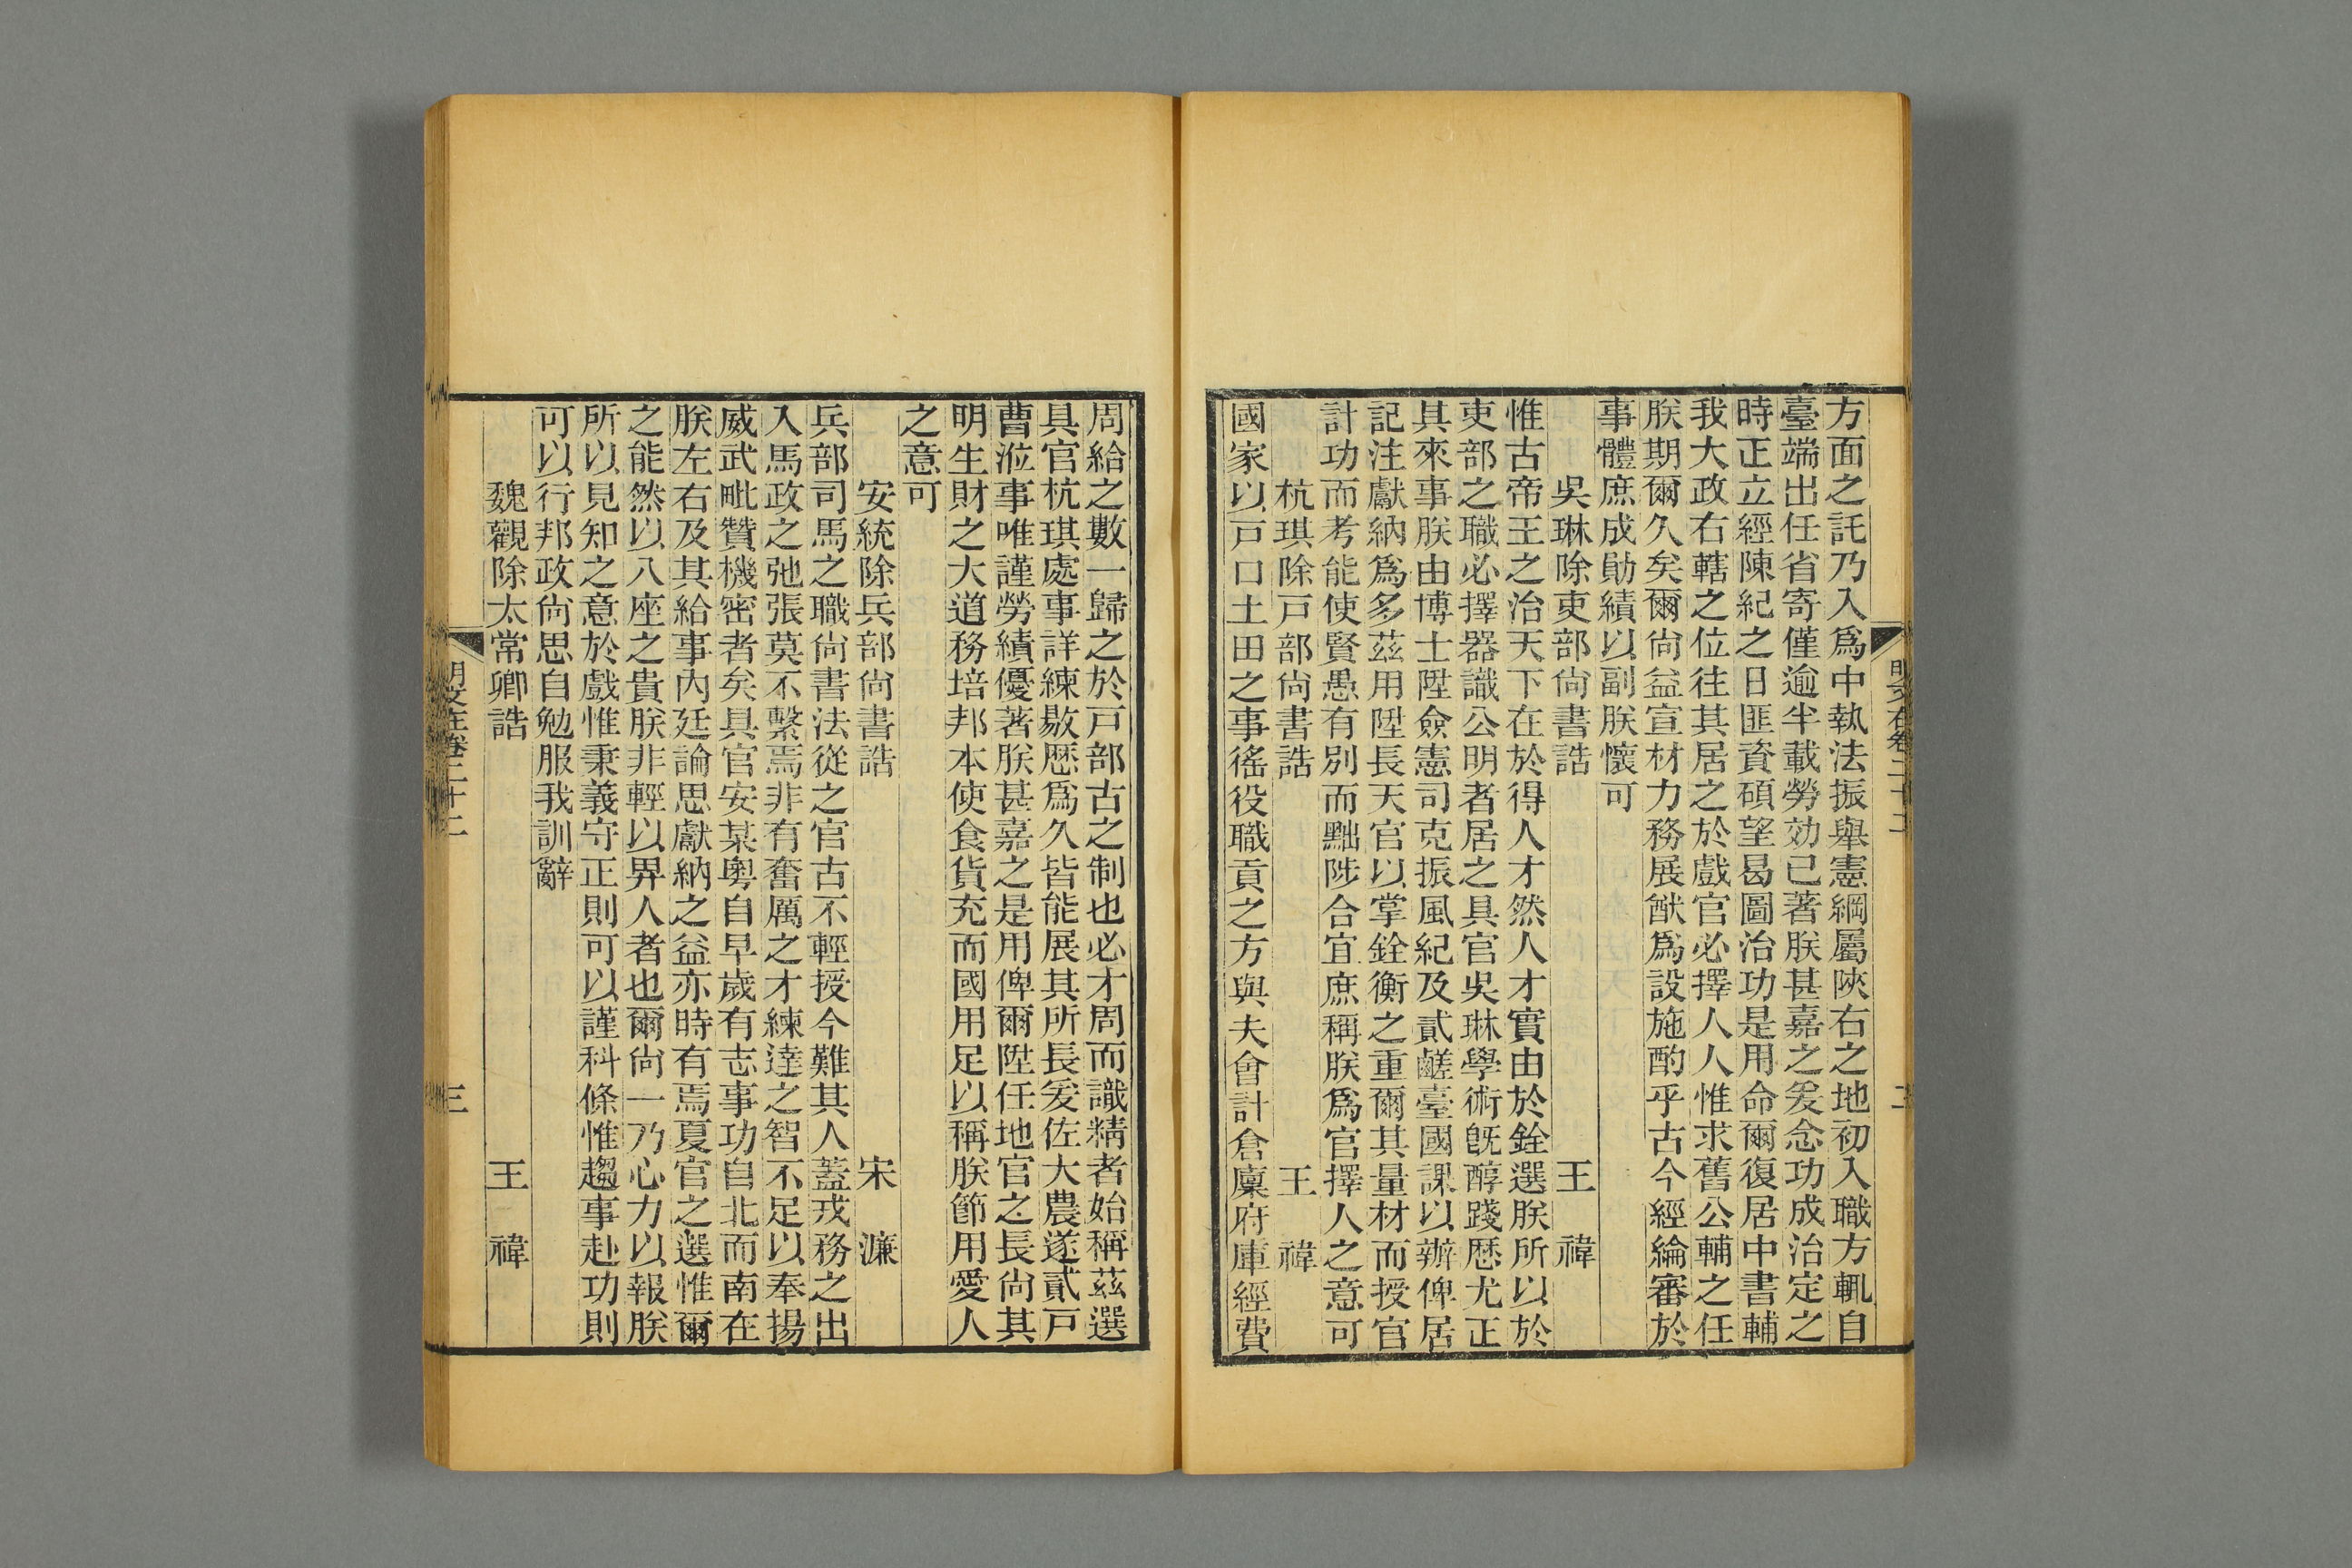 方面之託乃入爲中執法振舉憲綱屬陝右之地初入職方輒自
臺端出任省寄僅逾半載勞効已著朕甚嘉之爰念功成治定之
時正立經陳紀之日匪資碩望曷圖治功是用命爾復居中書輔
我大政右轄之位往其居之於戲官必擇人人惟求舊公輔之任
朕期爾久矣爾尙益宣材力務展猷爲設施酌乎古今經綸審於
事體庶成勛績以副朕懷可
吳琳除吏部尙書誥 王禕
惟古帝王之治天下在於得人才然人才實由於銓選朕所以於
吏部之職必擇器識公明者居之具官吳琳學術旣醇踐歷尤正
其來事朕由博士陞僉憲司克振風紀及貳鹺臺國課以辦俾居
記注獻納爲多茲用陞長天官以掌銓衡之重爾其量材而授官
計功而考能使賢愚有別而黜陟合宜庶稱朕爲官擇人之意可
杭琪除戸部尙書誥 王禕
國家以戸口土田之事徭役職貢之方與夫會計倉廩府庫經費
周給之數一歸之於戸部古之制也必才周而識精者始稱茲選
具官杭琪處事詳練敭歷爲久皆能展其所長爰佐大農遂貳戸
曹涖事唯謹勞績優著朕甚嘉之是用俾爾陞任地官之長尙其
明生財之大道務培邦本使食貨充而國用足以稱朕節用愛人
之意可
安統除兵部尙書誥 宋濂
兵部司馬之職尙書法從之官古不輕授今難其人蓋戎務之出
入馬政之弛張莫不繫焉非有奮厲之才練達之智不足以奉揚
威武毗贊機密者矣具官安某粤自早歲有志事功自北而南在
朕左右及其給事內廷論思獻納之益亦時有焉夏官之選惟爾
之能然以八座之貴朕非輕以畀人者也爾尙一乃心力以報朕
所以見知之意於戲惟秉義守正則可以謹科條惟趨事赴功則
可以行邦政尙思自勉服我訓辭
魏觀除太常卿誥 王禕
明文在卷二十二 三